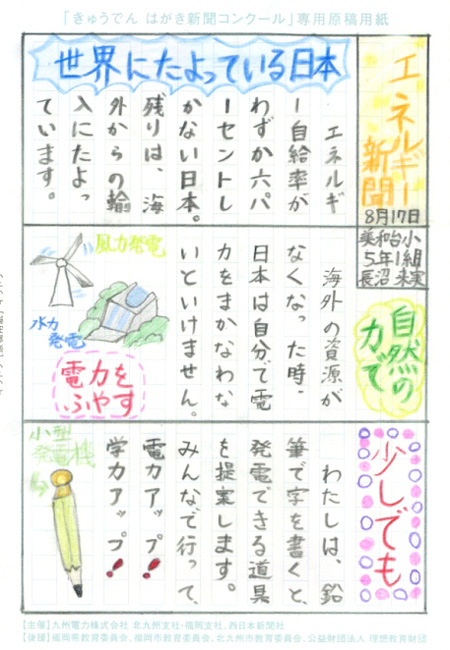 「きゅうでん はがき新聞コンクール」専用原稿用紙
エネルギー
新聞
8月17日
美和台小
5年1組
長沼 来実
世界にたよっている日本
エネルギ
ー自給率が
わずか六パ
ーセントし
かない日本。
残りは、海
外からの輸
入にたよっ
ています。
自然の
力で
海外の資源が
なくなった時、
日本は自分で電
力をまかなわな
いといけません。
風力発電
水力
発電
電力を
ふやす
少しでも
わたしは、鉛
筆で字を書くと、
発電できる道具
を提案します。
みんなで行って、
電力アップ!
学力アップ!
小型
発電機
【主催】九州電力株式会社 北九州支社・福岡支社、西日本新聞社
【後援】福岡県教育委員会、福岡市教育委員会、北九州市教育委員会、公益財団法人 理想教育財団